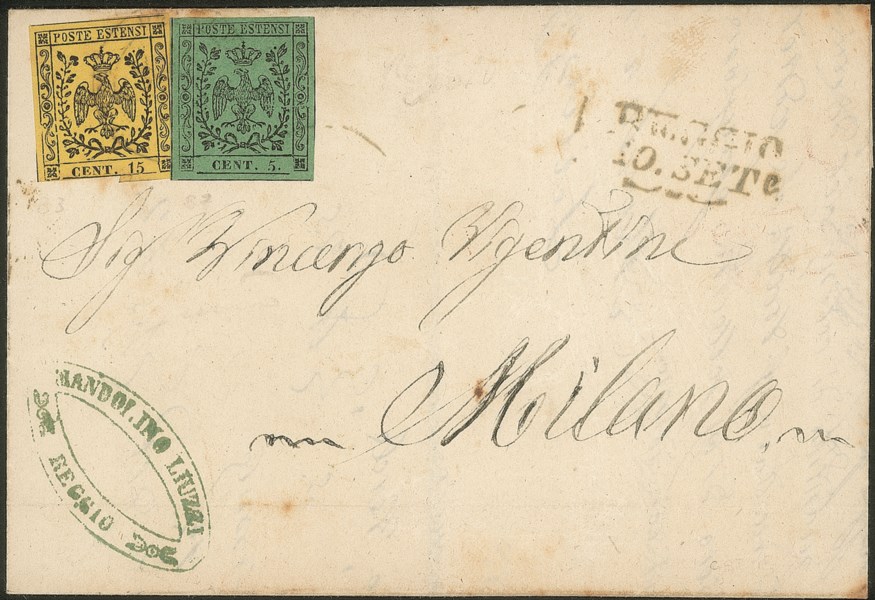 POSTE ESTENSI
CENT. 15
POSTE ESTENSI
CENT. 5.
REGGIO
10. SETe
Sig Vincenzo
Milano
MANDOLINO LIUZZI
REGGIO